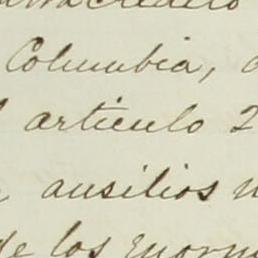 Columbia,
articulo 2
ausilios
de los enorm